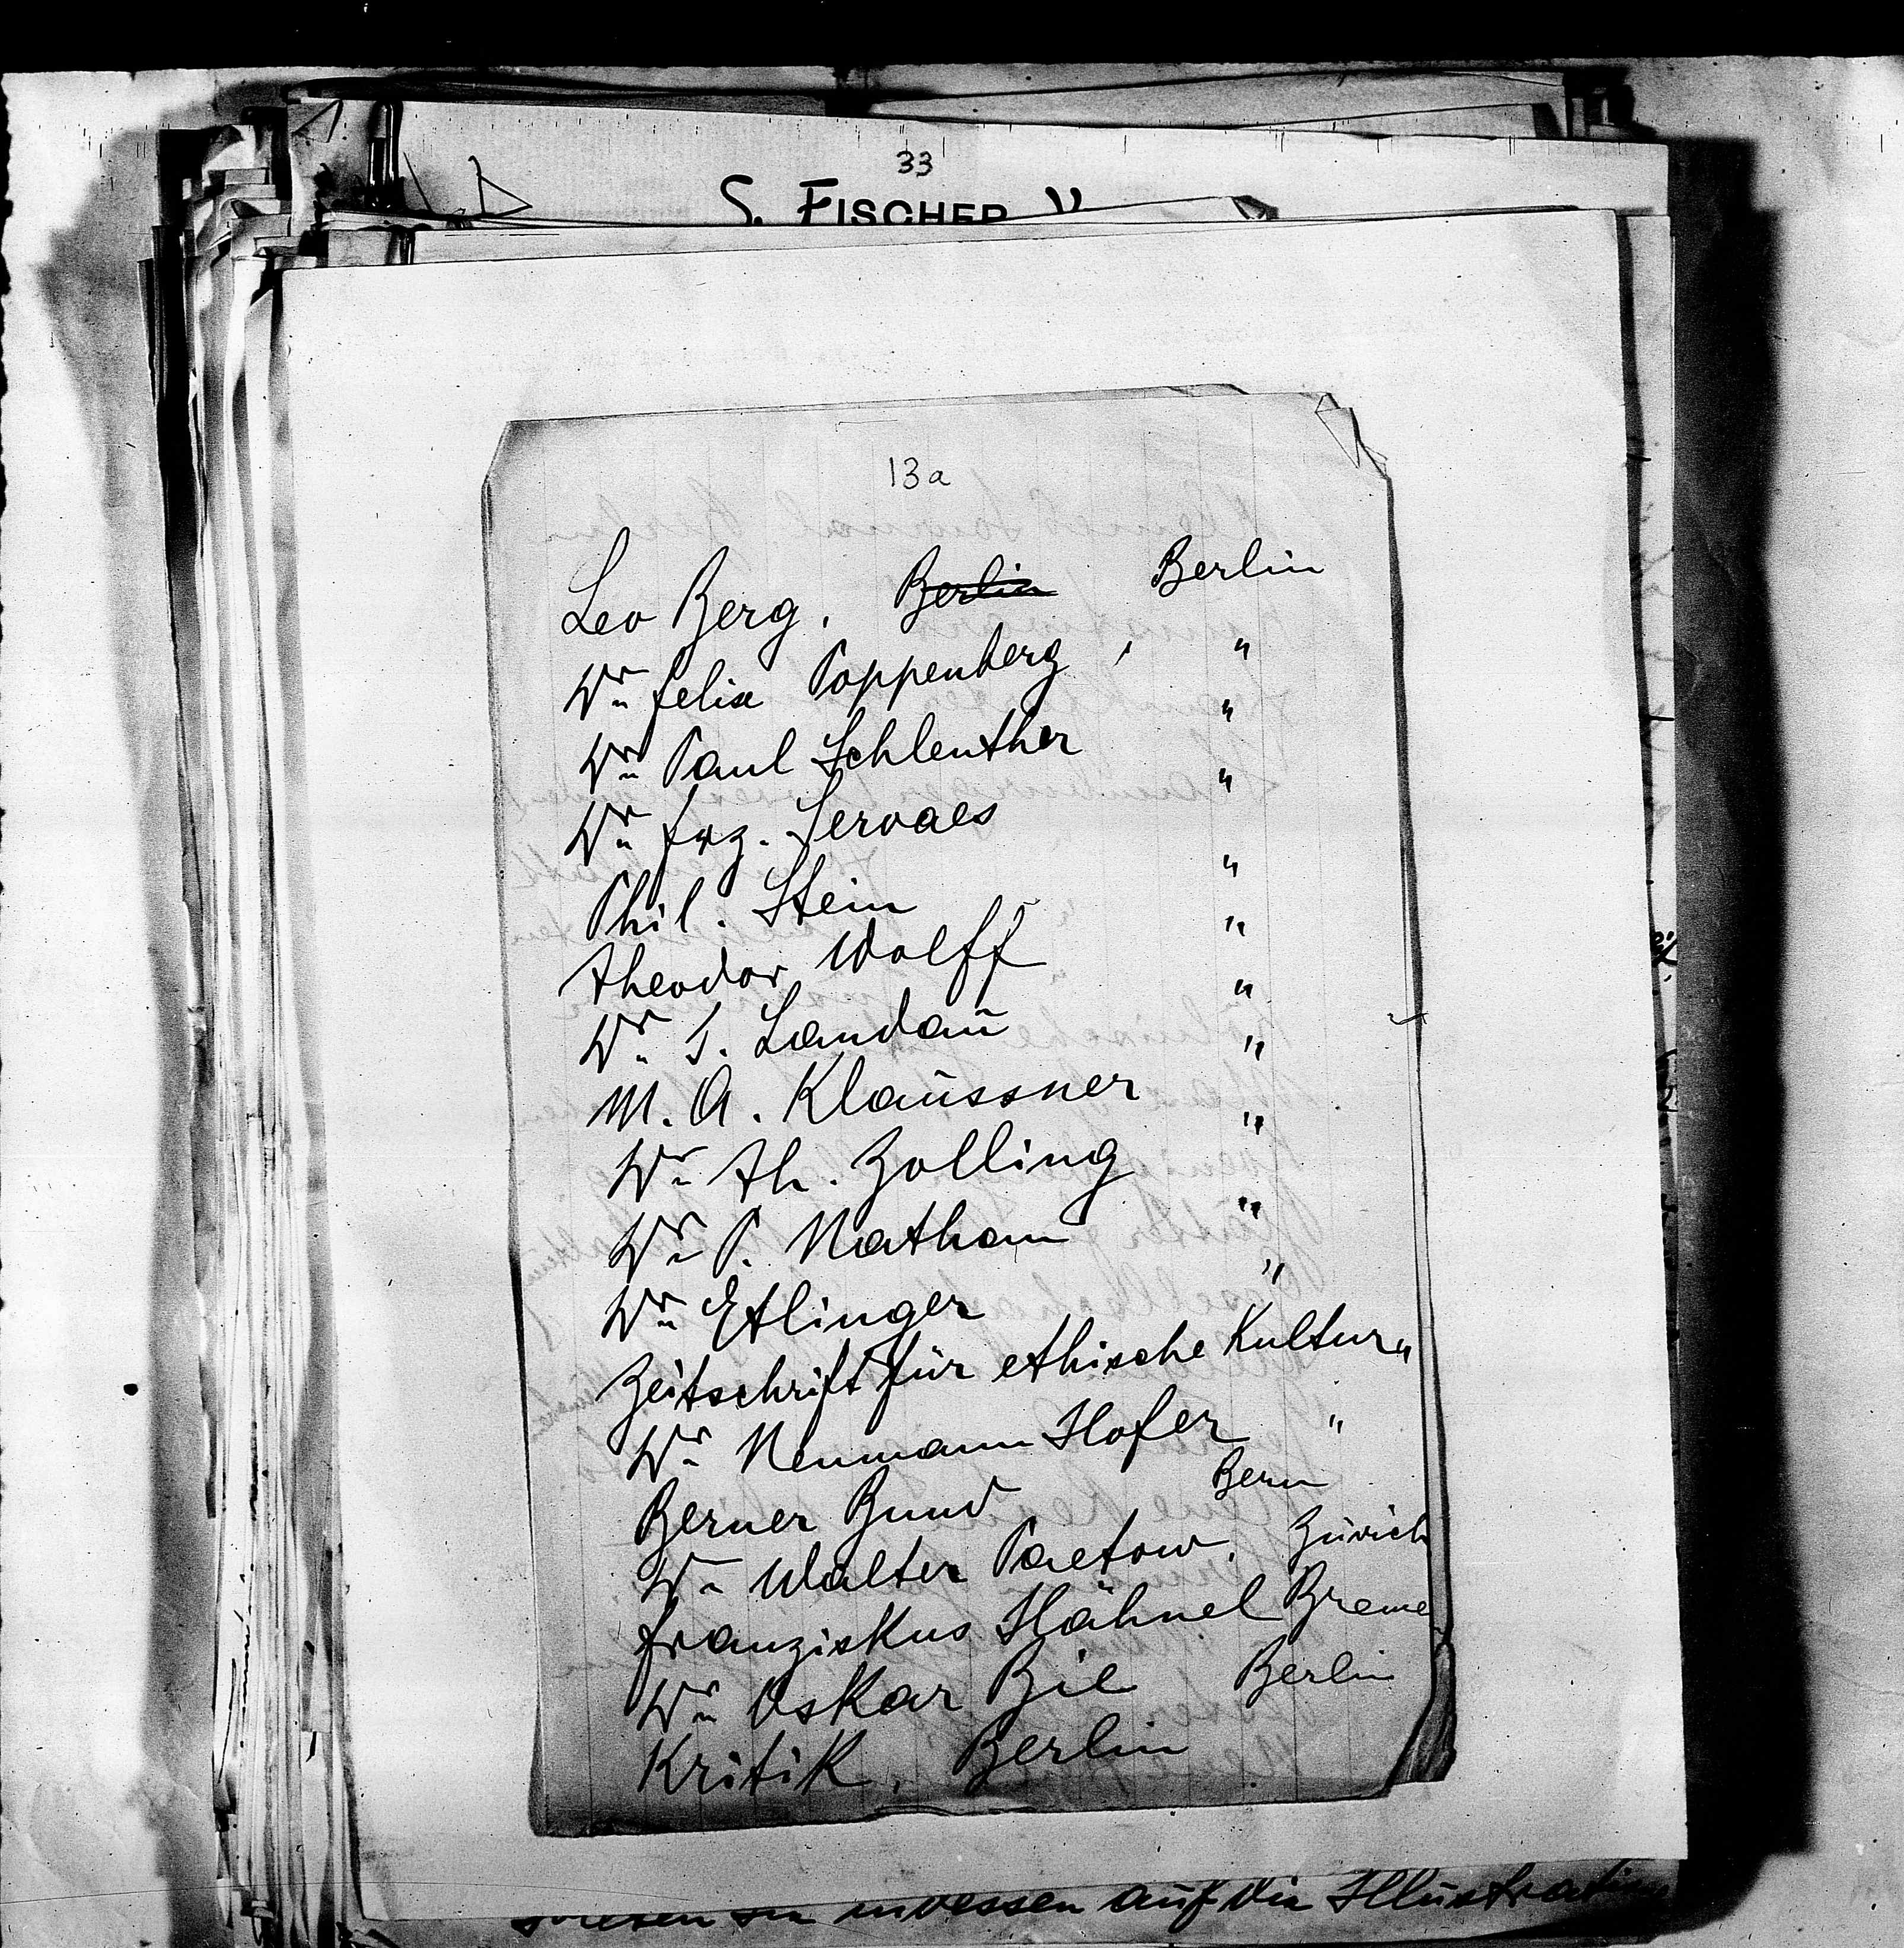 33
S. FISCHER V
13a
Leo Berg, Berlin Berlin
Dr. Felix Poppenberg, "
Dr. Paul Schlenther "
Dr. Frz. Servaes "
Phil. Stein "
Theodor Wolff "
Dr. I. Landau "
M. A. Klaussner "
Dr. Th. Zolling "
Dr. P. Nathan "
Dr. Ettlinger "
Zeitschrift für ethische Kultur "
Dr. Neumann Hofer "
Berner Bund Bern
Dr. Walter Paetow, Zürich
Franziskus Hähnel Breme
Dr. Oskar Bie Berlin
Kritik, Berlin
indessen auf die Illustration